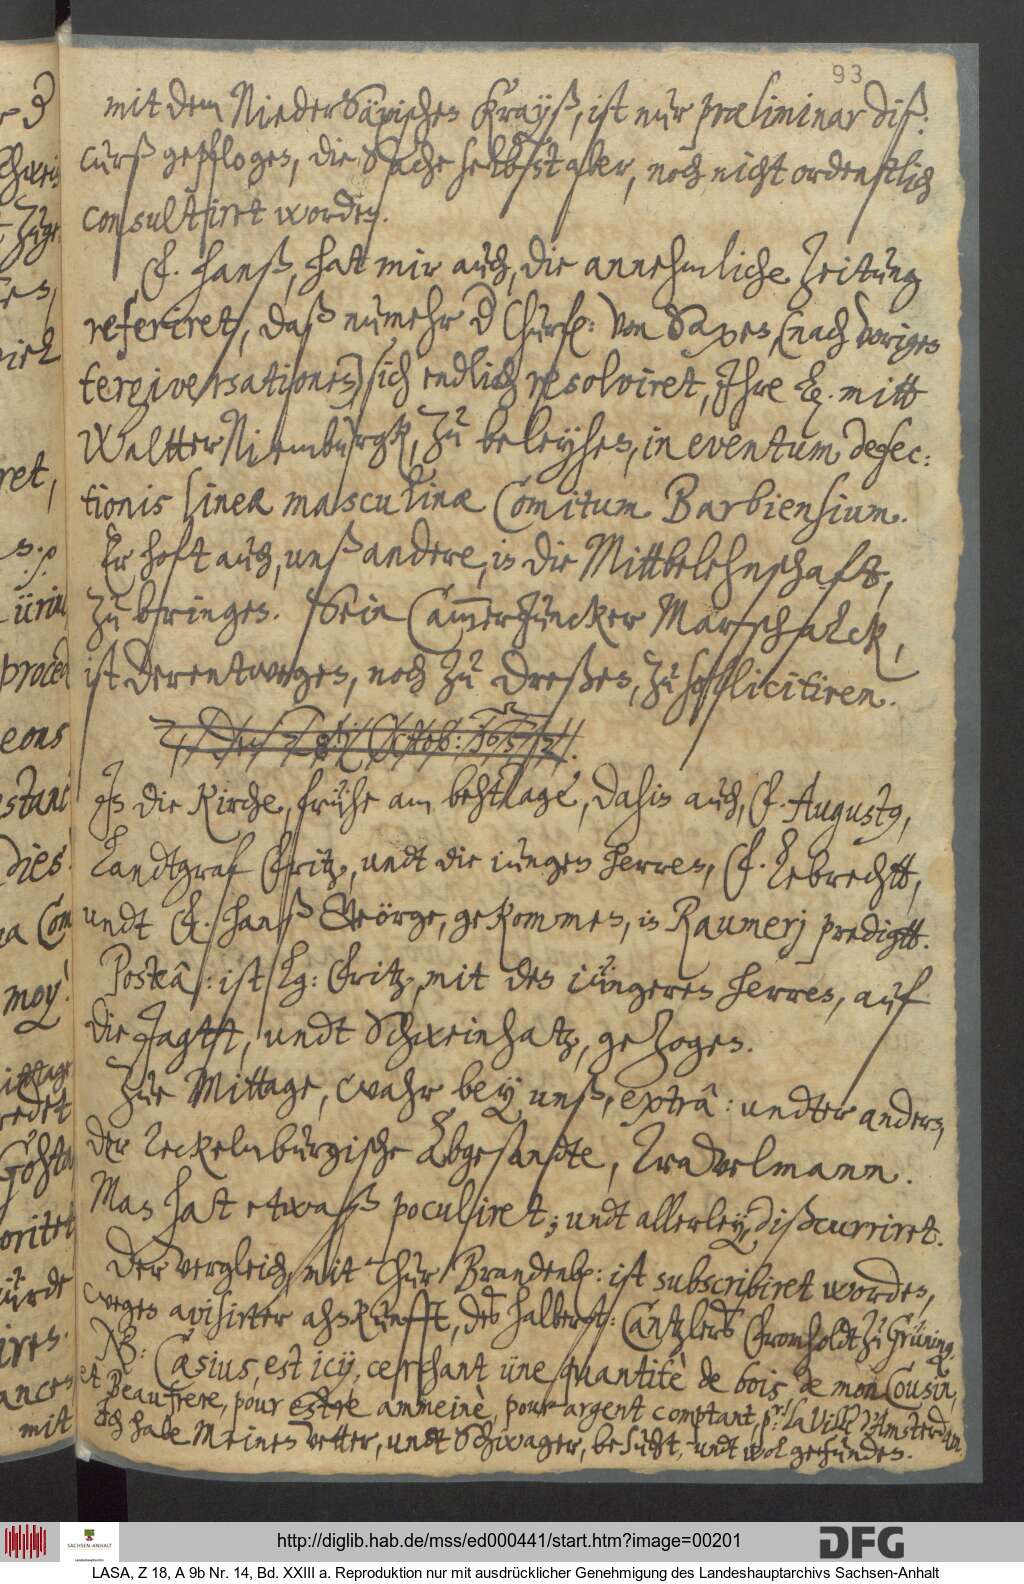 93
mit dem Nieder Säxischen Krayß, ist nur præliminar diß:
curß gepflogen, die Sache selbst aber, noch nicht ordentlich
consultiret worden.
F. Hanß, hat mir auch, die annehmliche Zeitung
referiret, daß numehr d Churf: von Saxen, (nach vorigen
tergiversationen) sich endlich resolviret, Ihre L. mitt
Waltter Niemburgk, zu beleyhen, in eventum defec:
tionis lineæ masculinæ Comitum Barbiensium.
Er hoft auch, unß andere, in die Mittbelehnschaft,
zu bringen. Sein CammerJuncker Marschalck,
ist derentwegen, noch zu Dreßen, zu sollicitiren.
den 28. Octob: 1657.
In die Kirche, frühe am behttage, dahin auch, F. Augustus,
Landtgraf Fritz, undt die iungen Herren, F. Lebrechtt,
undt F. Hanß Geörge, gekommen, in Raumerj predigtt.
Posteâ: ist Lg: Fritz, mit den iüngeren Herren, auf
die Jagtt, undt Schweinhatz, gezogen.
Zue Mittage, wahr bey unß, extrâ: undter andern,
der Teckelnburgische Abgesandte, Tradvelmann.
Man hat etwaß poculiret, undt allerley, dißcurriret.
Der vergleich, mit Chur Brandenb: ist subscribiret worden,
wegen avisirter ahnkunfft, des Halberst: Cantzlers Fromholdt zu Grüning.
NB: Casius, est icy, cerchant üne quantitè de bois, de mon Cousin,
et Beaufrere, pour estre ammeinè, pour argent comptant, pr: la Ville d'Amsterdam.
Ich habe Meinen vetter, undt Schwager, besucht, undt wol gefunden.
http://diglib.hab.de/mss/ed000441/start.htm?image=00201
SACHSEN-ANHALT
DFG
LASA, Z 18, A 9b Nr. 14, Bd. XXIII a. Reproduktion nur mit ausdrücklicher Genehmigung des Landeshauptarchivs Sachsen-Anhalt